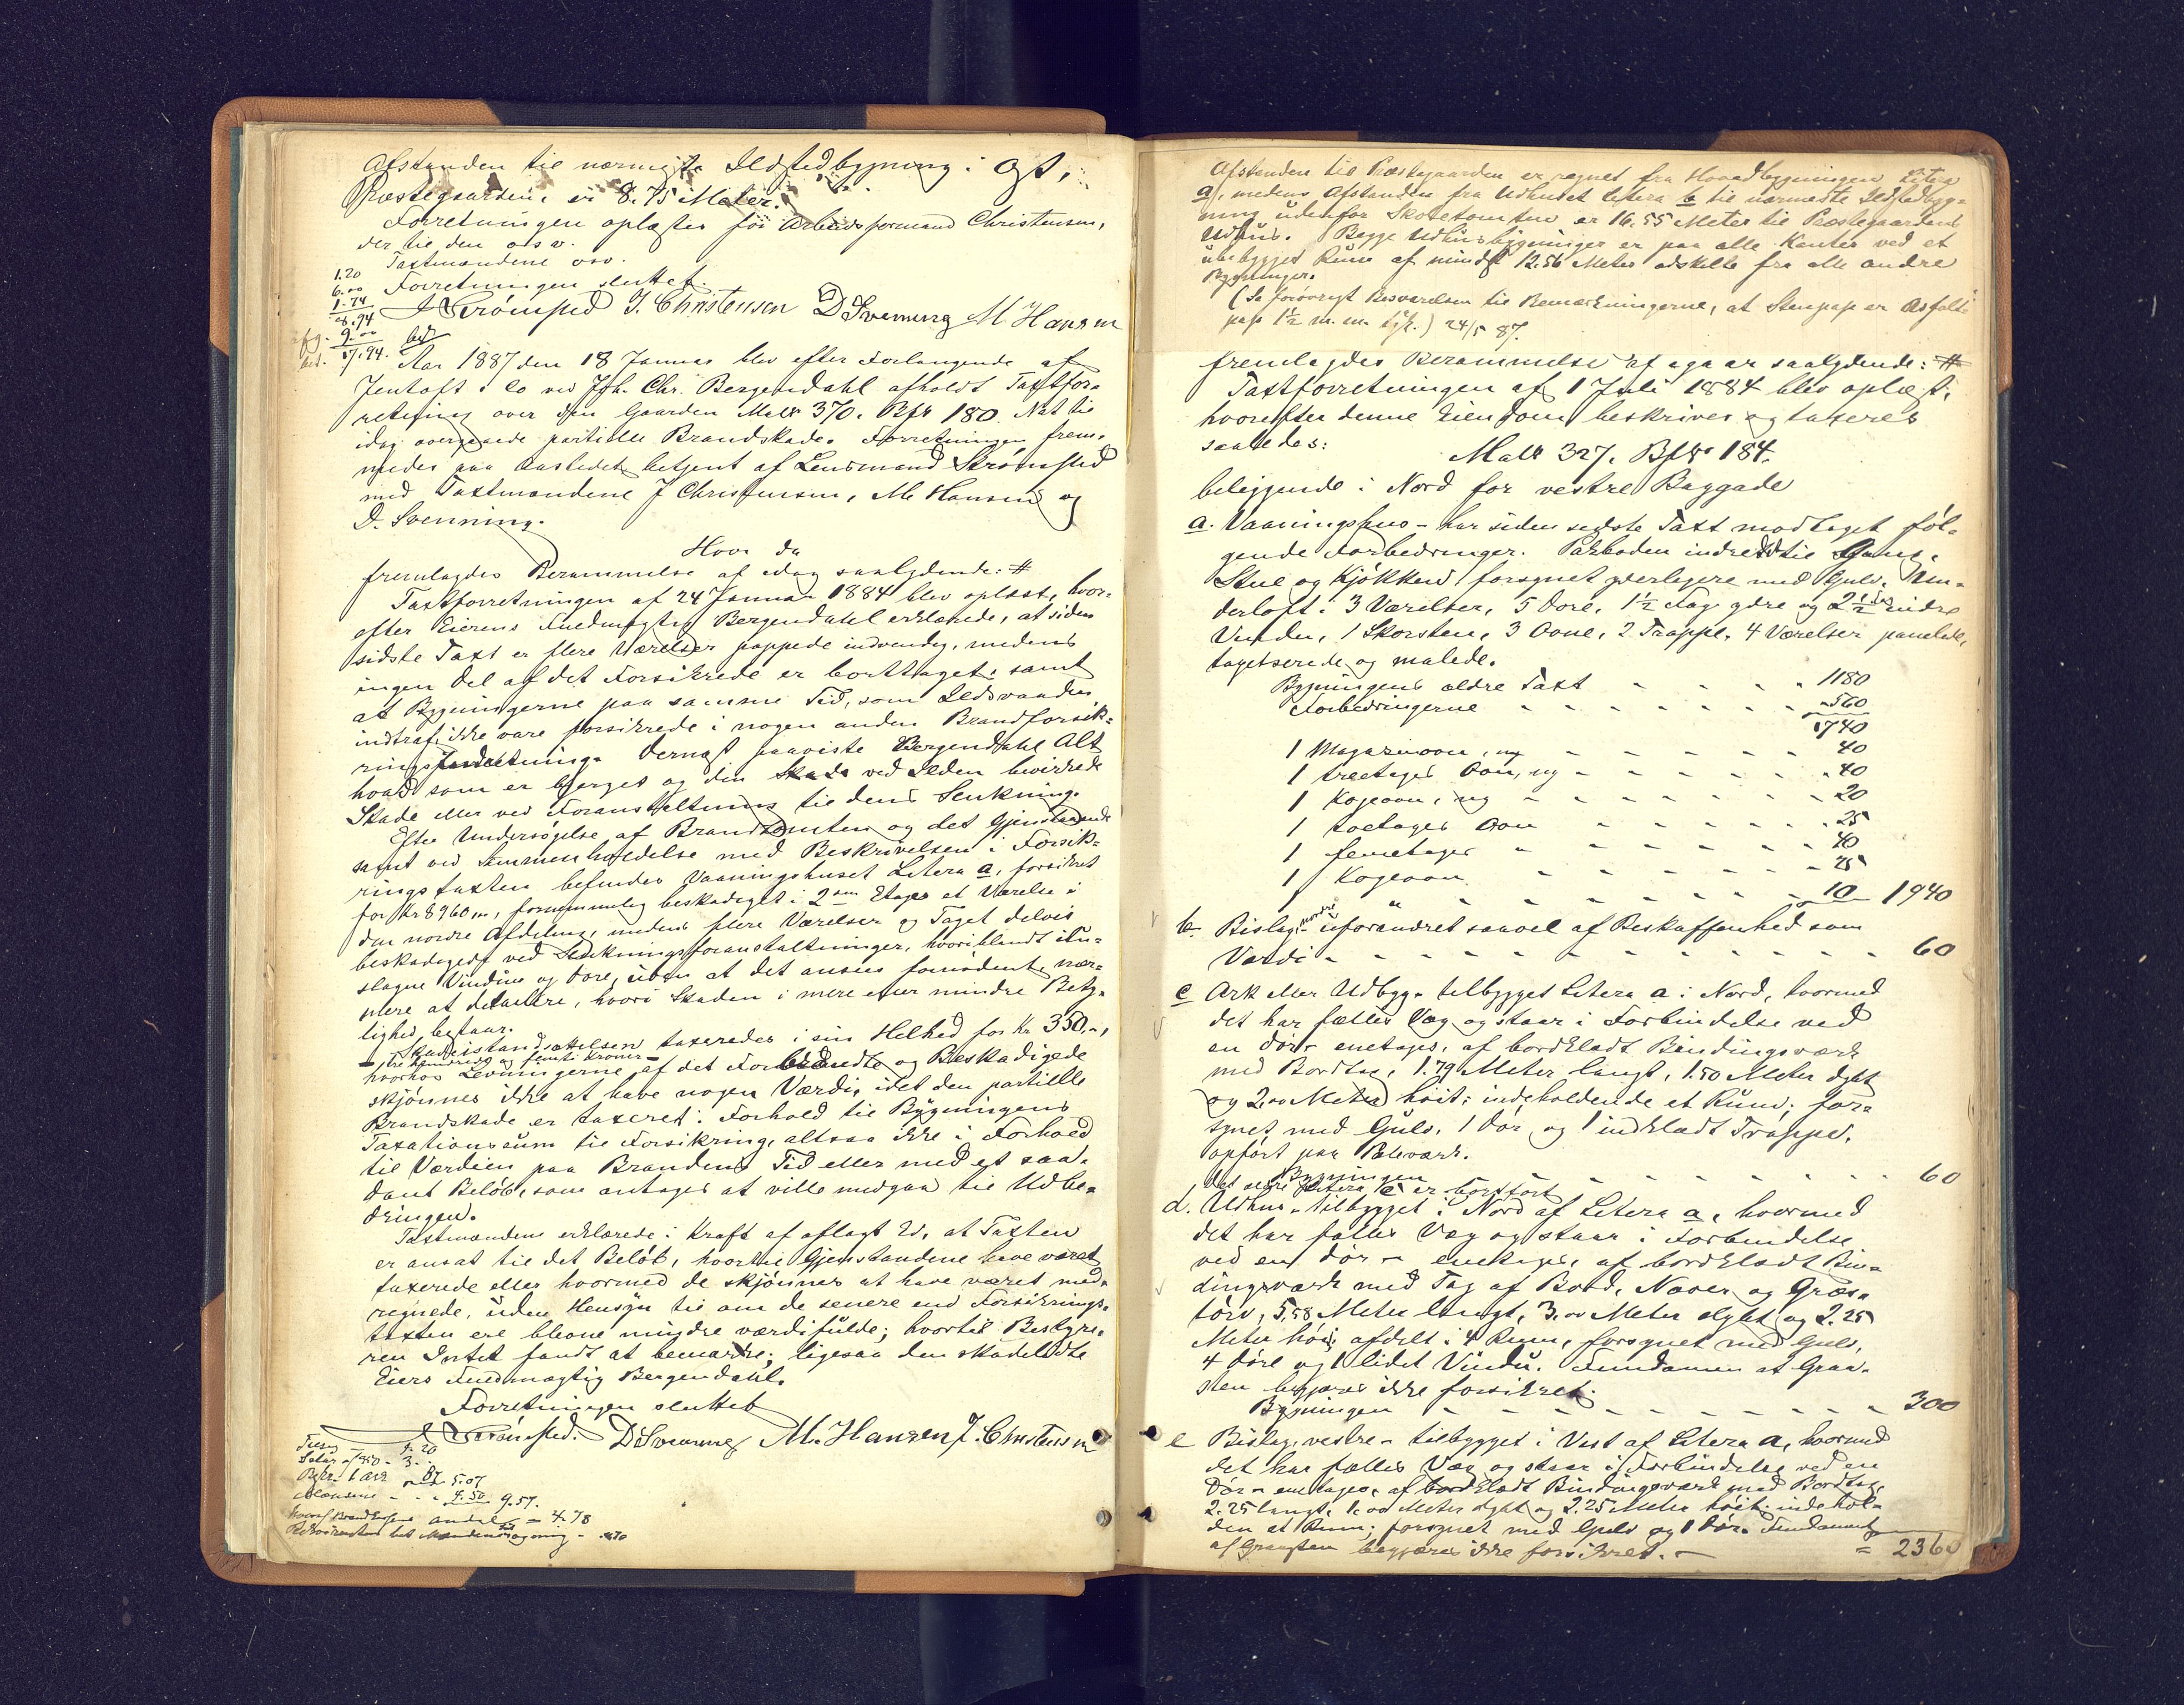 Afstanden til nærmeste Ildstedbygning i Øst,
Præstegaarden, er 8.75 Meter.
Forretningen oplæstes for Arbeidsformand Christensen,
der til den osv.
Taxtmændene osv.
Forretningen sluttet.
1.20
6.00
1.74
8.94
9.00
17.94
Strømsted J. Christensen D Svenning M Hansen
Aar 1887 den 18 Januar blev efter Forlangende af
Jentoft & Co ved Joh. Chr. Bergendahl afholdt Taxtfor-
retning over den Gaarden Matr 370. Bfr 180. Nat til
idag overgaaede partielle Brandskade. Forretningen frem-
mødes paa Aastedet betjent af Lensmand Strømsted
med Taxtmændene J Christensen, M. Hansen og
D. Svenning.
Hvor da
fremlagdes Berammelse af idag saalydende: #
Taxtforretningen af 24 Januar 1884 blev oplæst, hvor-
efter Eierens Fuldmægtig Bergendahl erklærede, at siden
sidste Taxt er flere Værelser pappede indvendig, medens
ingen Del af det Forsikrede er borttaget, samt
at Bygningerne paa samme Tid, som Ildsvaaden
indtraf, ikke vare forsikrede i nogen anden Brandforsik-
ringsindretning. Dernæst paaviste Bergendahl Alt
hvad som er bjerget og den ved Ilden bevirkede
Skade eller ved Foranstaltning til dens Slukning.
Efter Undersøgelse af Brandtomten og det Gjenstaaende
samt ved Sammenholdelse med Beskrivelsen i Forsik-
ringstaxten befindes Vaaningshuset Litera a, forsikret
for Kr 8960.00, fornemmelig beskadiget i 2den Etage et Værelse i
den nordre Afdeling, medens flere Værelser og Taget delvis
beskadiget ved Slukningsforanstaltninger, hvoriblandt itu-
slagne Vinduer og Døre, uden at det ansees fornødent, nær-
mere at detailere, hvori Skaden i mere eller mindre Bety-
lighed bestaar.
Skadeistandsættelsen taxeredes i sin Helhed for Kr 350.-,
- tre hundrede og femti Kroner -
hvorhos Levningerne af det Forbrændte og Beskadigede
skjønnes ikke at have nogen Værdi, idet den partielle
Brandskade er taxeret i Forhold til Bygningens
Taxationssum til Forsikring, altsaa ikke i Forhold
til Værdien paa Brandens Tid eller med et saa-
dant Beløb, som antages at ville medgaa til Udbe-
dringen.
Taxtmændene erklærede i Kraft af aflagt Ed, at Taxten
er ansat til det Beløb, hvortil Gjenstandene have været
taxerede eller hvormed de skjønnes at have været med-
regnede, uden Hensyn til om de senere end Forsikrings-
taxten ere blevne mindre værdifulde; hvortil Bestyre-
ren Intet fandt at bemærke; ligesaa den skadelidte
Eiers Fuldmægtig Bergendahl.
Forretningen sluttet
Strømsted. D Svenning M. Hansen J. Christensen
1.20
3.
87 5.07
4.50 9.57.
andel = 4.78
Afstanden til Præstegaarden er regnet fra Hovedbygningen Litera
a, medens Afstanden fra Udhuset Litera b til nærmeste Ildstedbyg-
ning udenfor Skoletomten er 16.55 Meter til Præstegaardens
Udhus. Begge Udhusbygninger er paa alle Kanter ved et
ubebygget Rum af mindst 12.56 Meter adskilte fra alle andre
Bygninger.
(Se forøvrigt Besvarelsen til Bemærkningerne, at Stenpap er Asfalt-
pap 1½ m.m. tyk.) 24/5 87.
fremlagdes Berammelse af saalydende: #
Taxtforretningen af 1 Juli 1884 blev oplæst,
hvorefter denne Eiendom beskrives og taxeres
saaledes:
Matr 327. Bfr. 184.
beliggende i Nord for vestre Baggade
a. Vaaningshus - har siden sidste Taxt modtaget føl-
gende Forbedringer. Pakboden indredet til Gang,
Stue og Kjøkken, forsynet yderligere med Gulv, Un-
derloft i 3 Værelser, 5 Døre, 1½ Fag ydre og 2½ Fag indre
Vinduer, 1 Skorsten, 3 Ovne, 2 Trapper, 4 Værelser panelede,
tapetserede og malede.
Bygningens ældre Taxt - - - - 1180
Forbedringerne - - - - - 560
1740
1 Magazinovn, ny - - - - - 40
1 treetages Ovn, ny - - - - - 40
1 Kogeovn, ny - - - - - 20
1 toetages Ovn - - - - - 25
1 femetages " - - - - - 40
1 Kogeovn - - - - - 25
1 " - - - - - 10 1940
b. Bislag, nordre - uforandret saavel af Beskaffenhed som
Værdi - - - - - - - - - - 60
c Ark eller Udbyg - tilbygget Litera a i Nord, hvormed
det har fælles Væg og staar i Forbindelse ved
en Dør - enetages, af bordklædt Bindingsværk
med Bordtag, 1.79 Meter langt, 1.50 Meter dybt
og 2.00 Meter høit; indeholdende et Rum; for-
synet med Gulv, 1 Dør og 1 indklædt Trappe,
opført paa Pæleværk.
Bygningen - - - - - - - - 60
Det ældre Litera c er bortført
d. Udhus - tilbygget i Nord af Litera a, hvormed
det har fælles Væg og staar i Forbindelse
ved en Dør - enetages, af bordklædt Bin-
dingsværk med Tag af Bord, Næver og Græs-
tørv, 5.58 Meter langt, 3.00 Meter dybt og 2.25
Meter høit, afdelt i 4 Rum, forsynet med Gulv,
4 Døre og 1 lidet Vindu. Fundamen at Graa-
sten begjæres ikke forsikret.
Bygningen - - - - - - - - 300
e Bislag, vestre - tilbygget i Vest af Litera a, hvormed
det har fælles Væg og staar i Forbindelse ved en
Dør - enetages, af bordklædt Bindingsværk med Bordtag,
2.25 langt, 1.00 Meter dybt og 2.25 Meter høit; indehol-
den et Rum; forsynet med Gulv og 1 Dør. Fundament
af Graasten begjæres ikke forsikret. - = 2360